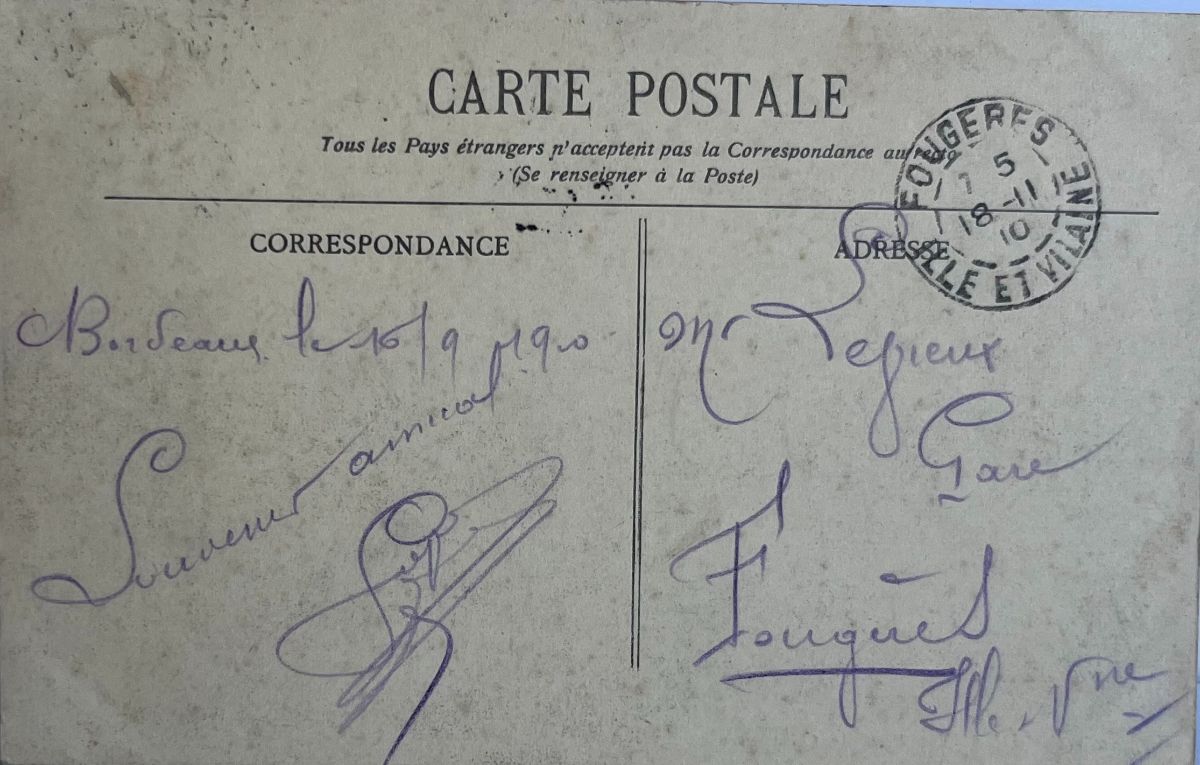 CARTE POSTALE
Tous les Pays étrangers n'acceptent pas la Correspondance au recto
(Se renseigner à la Poste)
FOUGERES
5
18-11
10
ILLE ET VILAINE
CORRESPONDANCE
ADRESSE
Bordeaux le 16/9 1910
Souvenir amical
Mr
Gare
Fougères
Ille-Vne